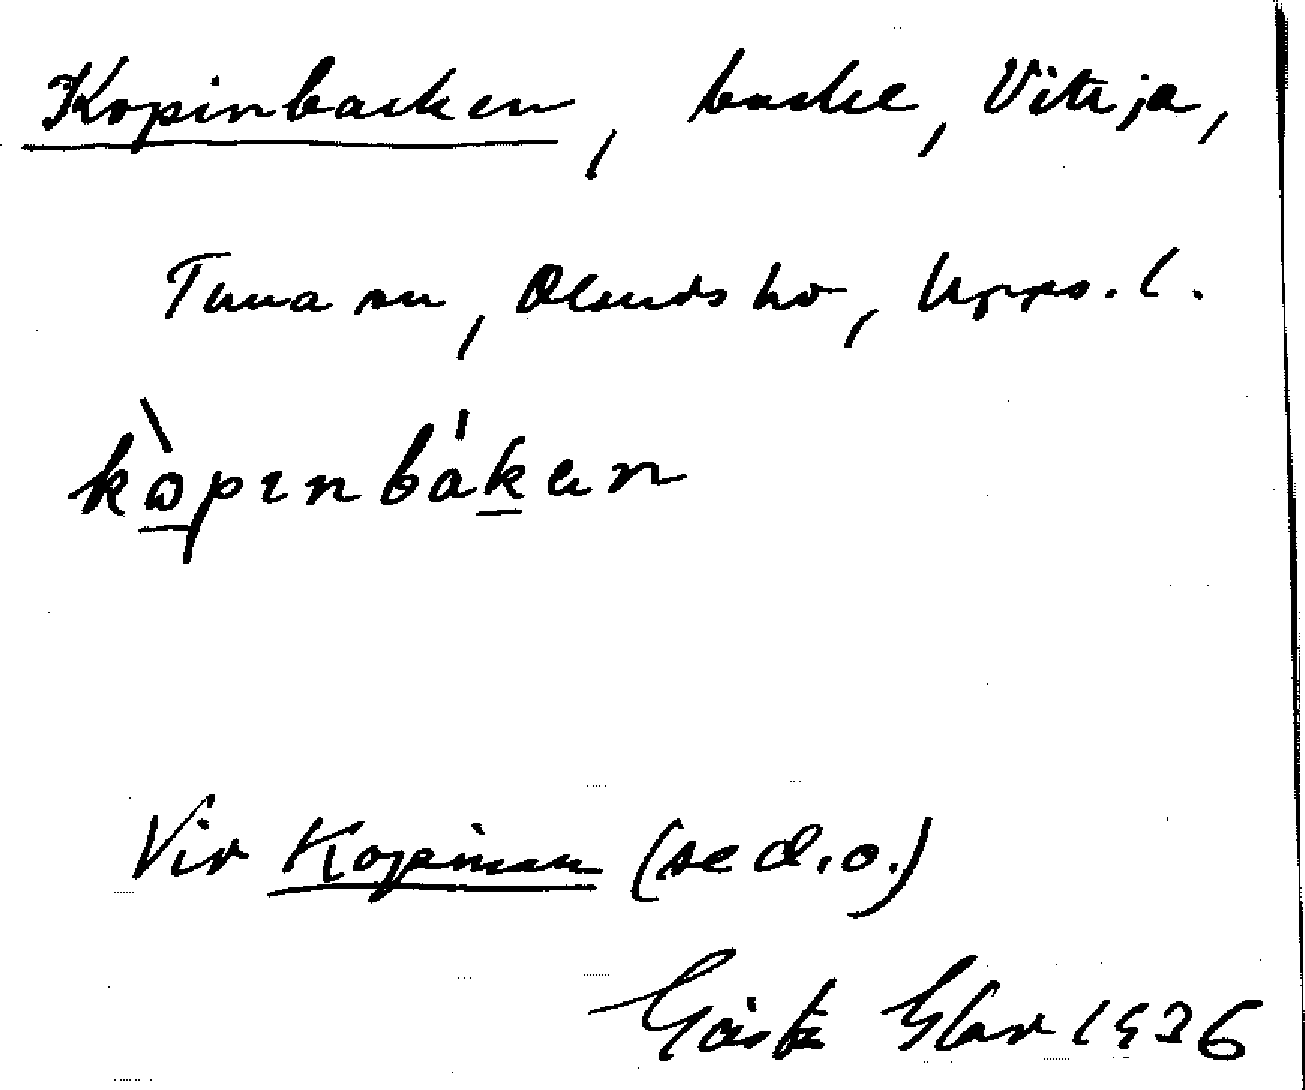 Kopinbacken, backe, Vittja,
Tuna sn, Olands hd, Upps. l.
kòpınbákan
Vid Kopinan (se d. o.)
Gösta 1936